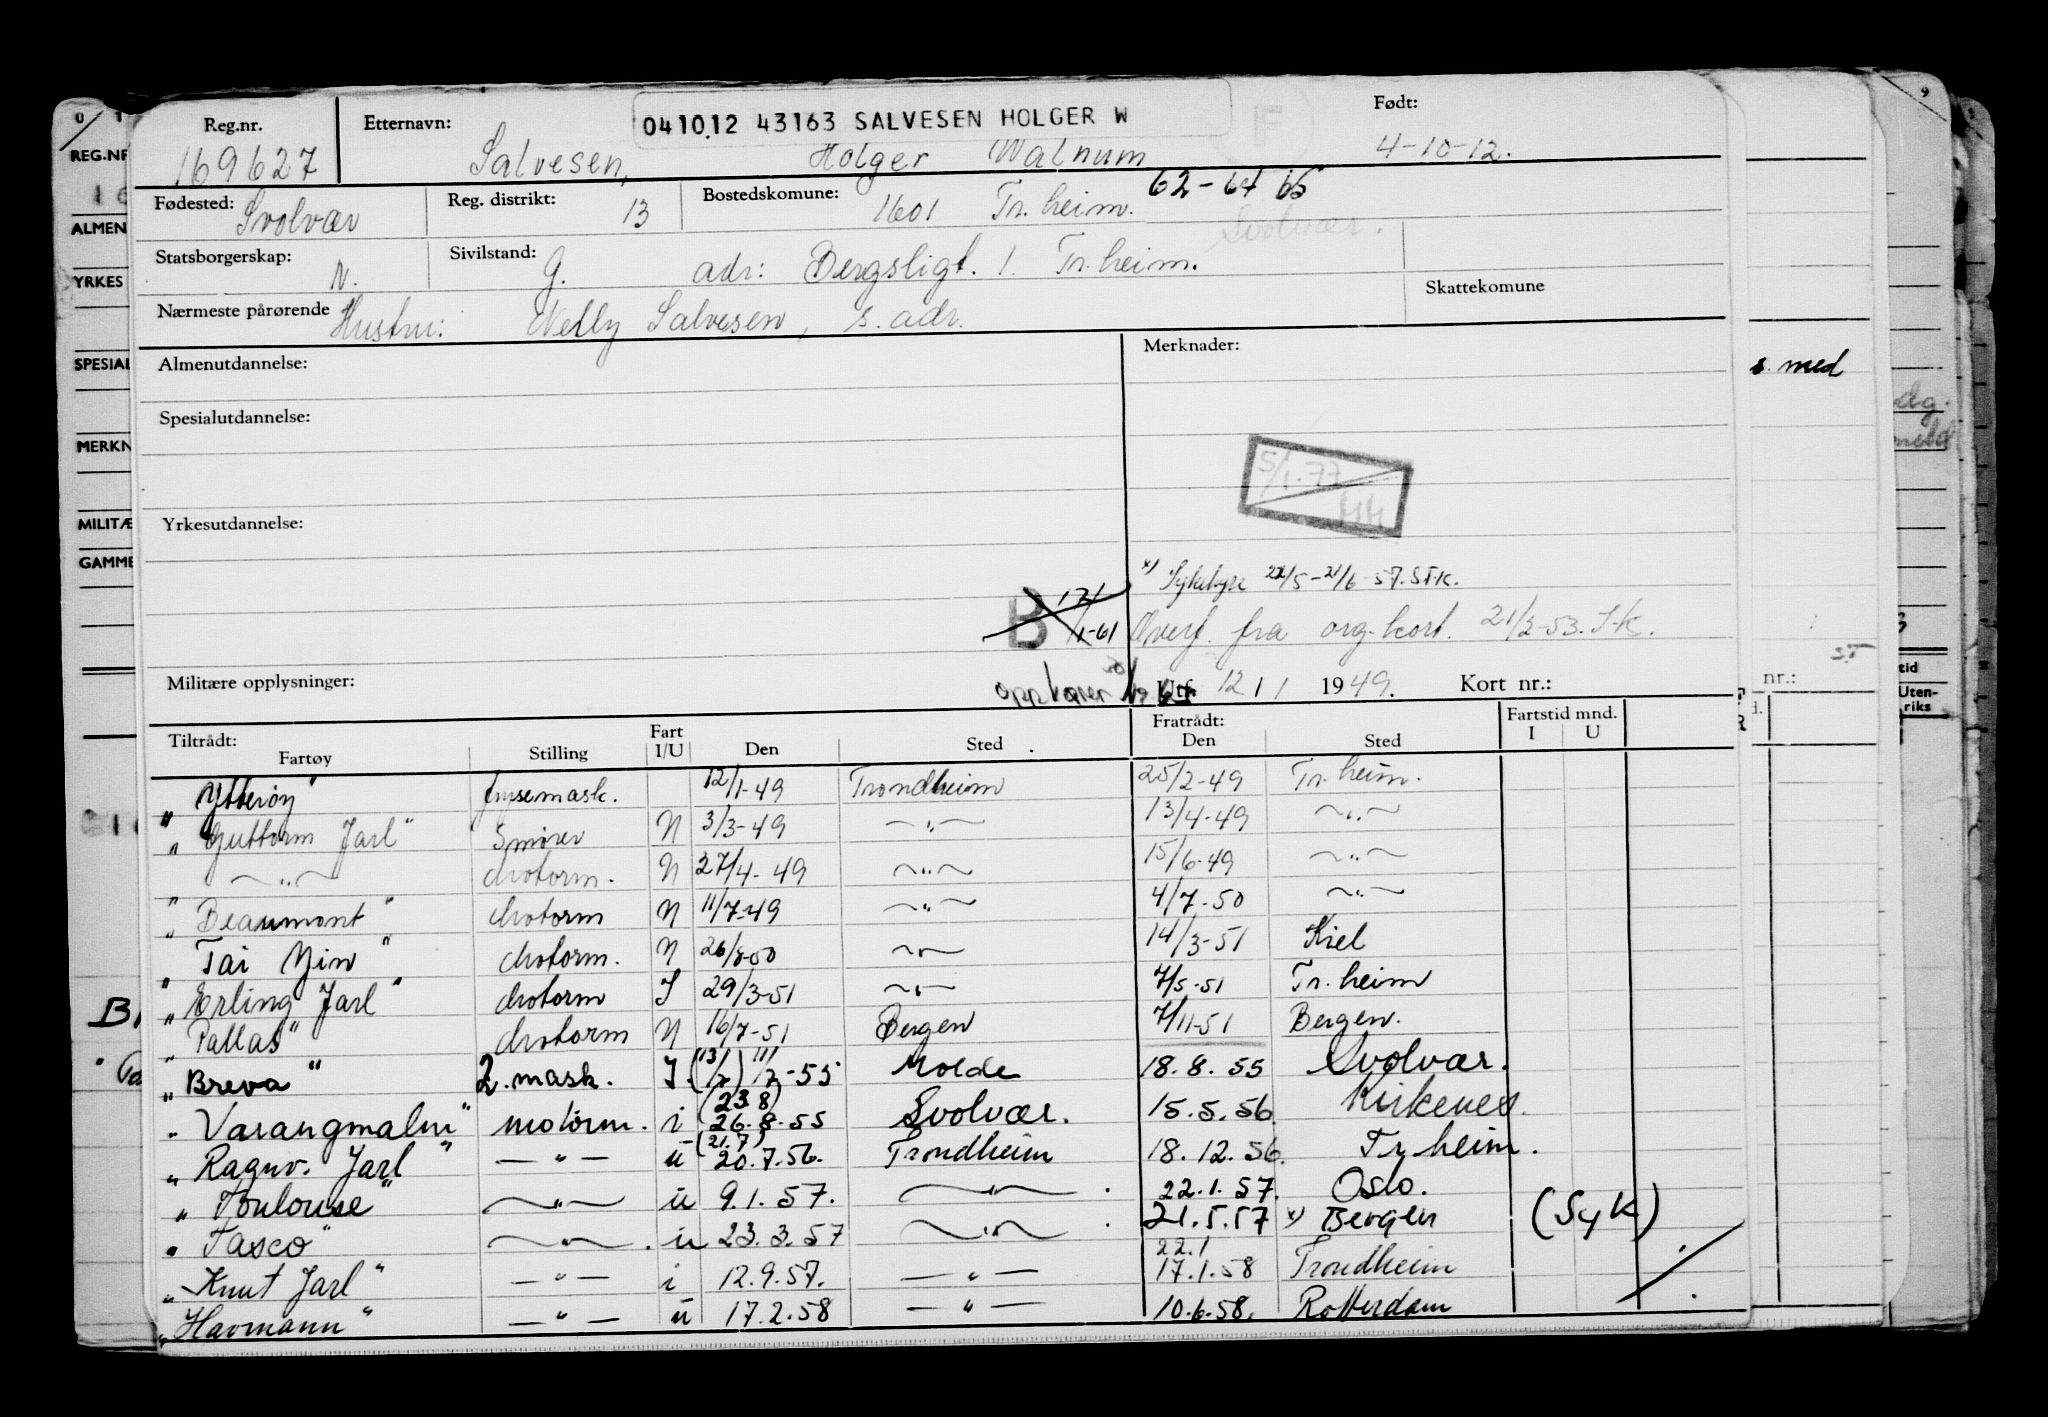 Reg.nr. Etternavn: 041012 43163 SALVESEN HOLGER W Født:
169627 Salvesen, Holger Walnum 4-10-12.
Fødested: Svolvær Reg. distrikt: 13 Bostedskomune: 1601 Tr.heim. 62-64 65
Svolvær.
Statsborgerskap: N. Sivilstand: G. adr: Bergsligt. 1. Tr.heim.
Skattekomune
Nærmeste pårørende Hustru: Nelly Salvesen, s. adr.
Almenutdannelse: Merknader:
Spesialutdannelse:
5/1-77
44
Yrkesutdannelse:
x) Sykehyre 22/5-21/6-57. STK.
B 121/1-61
Overf. fra org.kort. 21/2-53. S-k.
Militære opplysninger: Utf. 12/1 1949. Kort nr.:
Tiltrådt: Fratrådt: Fartstid mnd.
Fartøy Stilling Fart I/U Den Sted Den Sted I U
"Ytterøy" frysemask. 12/1-49 Trondheim 25/2-49 Tr.heim.
"Guttorm Jarl" Smører N 3/3-49 —"— 13/4-49 —"—
—"— Motorm. N 27/4-49 —"— 15/6-49 —"—
"Beaumont" Motorm N 11/7-49 —"— 4/7-50 —"—
"Tai Yin" Motorm. N 26/8-50 —"— 14/3-51 Kiel
"Erling Jarl" Motorm I 29/3-51 —"— 7/5-51 Tr.heim
"Pallas" Motorm N 16/7-51 Bergen 7/11-51 Bergen.
"Breva" 2. mask. I. (13/7) 11/7-55 Molde 18.8.55 Svolvær.
"Varangmalm" motorm. i (23.8) 26.8.55 Svolvær. 15.5.56 Kirkenes.
"Ragnv. Jarl" —"— u (21.7) 20.7.56. Trondheim 18.12.56. Tr.heim.
"Toulouse" —"— u 9.1.57. —"— 22.1.57. Oslo.
"Tasco" —"— u 23.3.57 —"— 21.5.57 x) Bergen (Syk)
"Knut Jarl" —"— i 12.9.57. —"— 22.1 17.1.58 Trondheim
"Havmann" —"— u 17.2.58 —"— 10.6.58. Rotterdam
REG.NR
ALMEN
YRKES
SPESIAL
MERKN
MILITÆ
GAMME
s. med
nr.:
tid
Uten-
riks